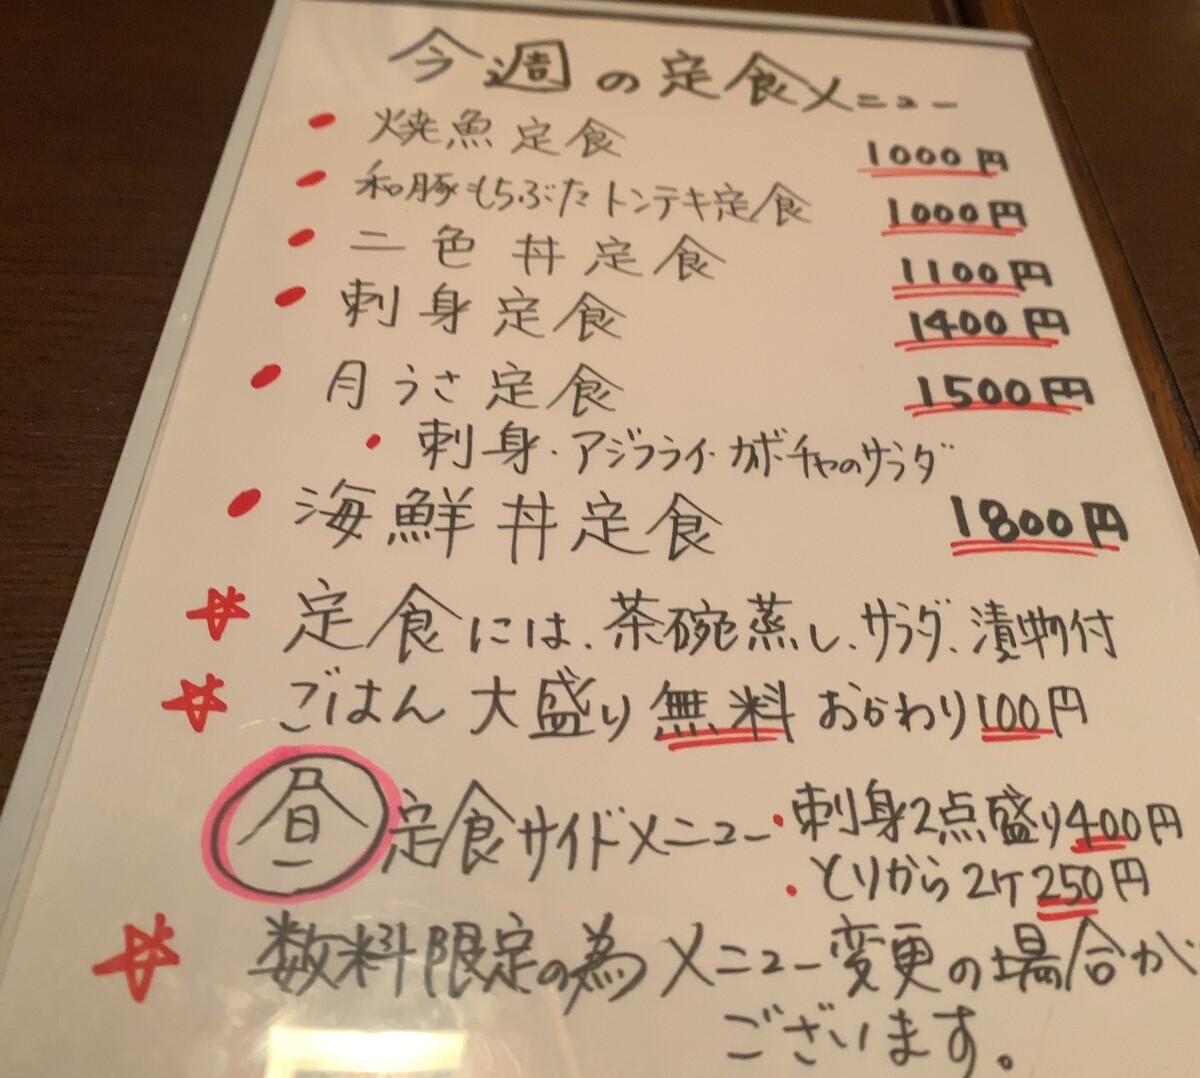 今週の定食メニュー
焼魚定食 1000円
和豚もちぶたトンテキ定食 1000円
二色丼定食 1100円
刺身定食 1400円
月うさ定食 1500円
・刺身・アジフライ・カボチャのサラダ
海鮮丼定食 1800円
定食には、茶碗蒸し、サラダ、漬物付
ごはん大盛り無料 おかわり100円
昼定食サイドメニュー・刺身2点盛り400円
・とりから2ケ250円
数料限定の為メニュー変更の場合が
ございます。